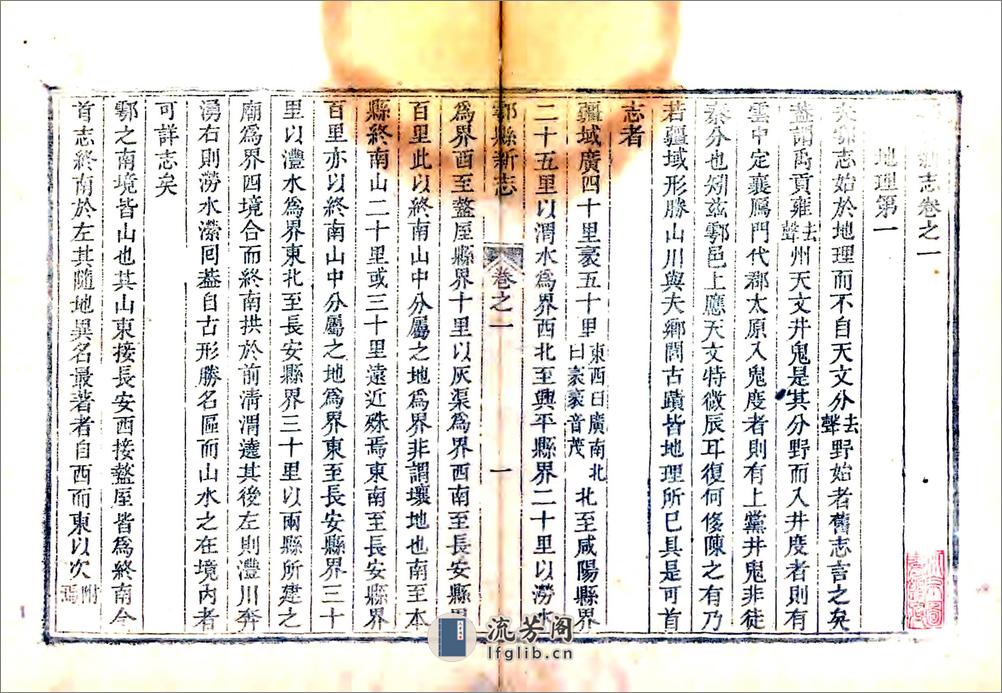 新志卷之一
地理第一
夫鄠志始於地理而不自天文分去聲野始者舊志言之矣
蓋謂禹貢雍去聲州天文井鬼是其分野而入井度者則有
雲中定襄鴈門代郡太原入鬼度者則有上黨井鬼非徒
秦分也矧玆鄠邑上應天文特微辰耳復何侈陳之有乃
若疆域形勝山川與夫鄉閭古蹟皆地理所已具是可首
志者
疆域廣四十里袤五十里東西曰廣南北曰袤袤音茂北至咸陽縣界
二十五里以渭水爲界西北至興平縣界二十里以澇水
鄠縣新志
卷之一
一
爲界西至盩厔縣界十里以灰渠爲界西南至長安縣界
百里此以終南山中分屬之地爲界非謂壤地也南至本
縣終南山二十里或三十里遠近殊焉東南至長安縣界
百里亦以終南山中分屬之地爲界東至長安縣界三十
里以灃水爲界東北至長安縣界三十里以兩縣所建之
廟爲界四境合而終南拱於前淸渭遶其後左則灃川奔
湧右則澇水瀠回蓋自古形勝名區而山水之在境內者
可詳志矣
鄠之南境皆山也其山東接長安西接盩厔皆爲終南今
首志終南於左其隨地異名最著者自西而東以次附焉
流芳阁
lfglib.cn